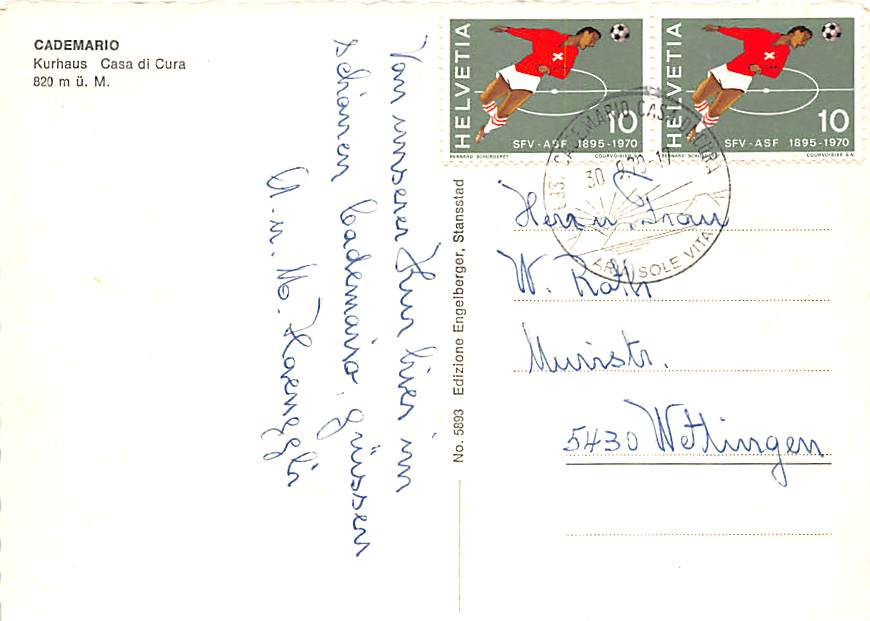 CADEMARIO
Kurhaus Casa di Cura
820 m ü. M.
HELVETIA
10
SFV-ASF 1895-1970
COURVOISIER
HELVETIA
10
SFV-ASF 1895-1970
COURVOISIER S.A.
CADEMARIO CASA DI CURA
30
ARIA SOLE VITA
Von unserer Kur hier im
schönen Cademario, grüssen
A. u. M.
No. 5893 Edizione Engelberger, Stansstad
Herr u. Frau
W. Roth
5430 Wettingen